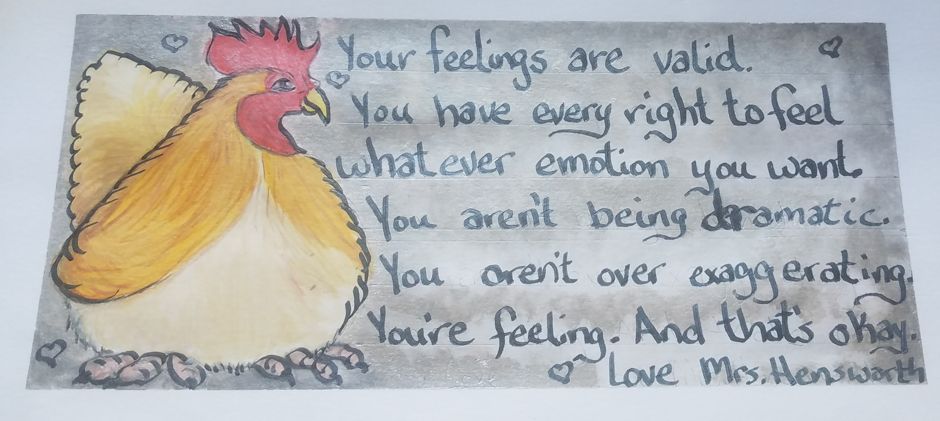 Your feelings are valid.
You have every right to feel
whatever emotion you want.
You aren't being dramatic.
You aren't over exaggerating.
You're feeling. And that's okay.
Love Mrs. Hensworth